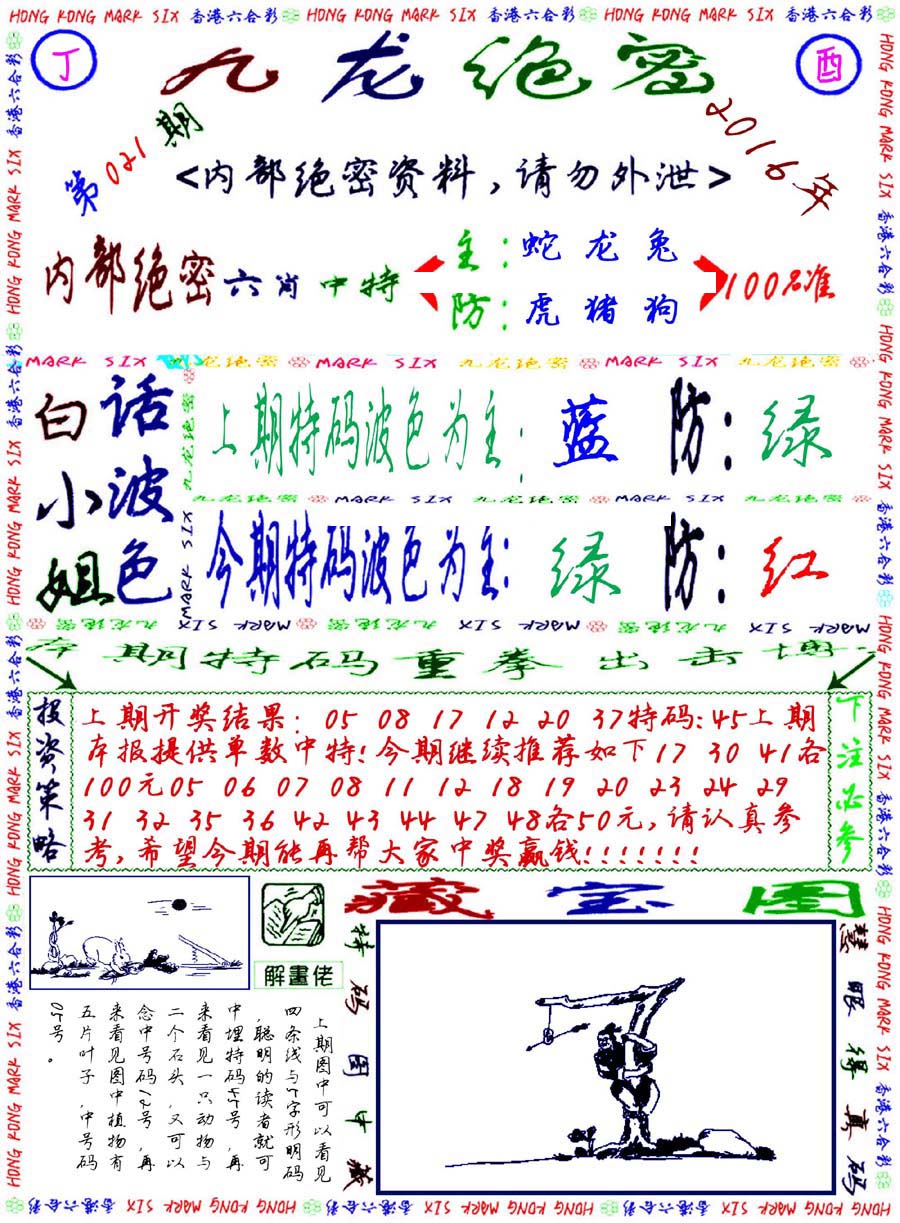 HONG KONG MARK SIX 香港六合彩 HONG KONG MARK SIX 香港六合彩 HONG KONG MARK SIX 香港六合彩
丁 九龙绝密 酉
第021期 2016年
<内部绝密资料,请勿外泄>
内部绝密六肖中特
主:蛇龙兔
防:虎猪狗
100%准
MARK SIX 九龙绝密 MARK SIX 九龙绝密 MARK SIX 九龙绝密
白小姐
话波色
上期特码波色为主:蓝 防:绿
九龙绝密 MARK SIX 九龙绝密 MARK SIX 九龙绝密
今期特码波色为主:绿 防:红
九龙绝密 MARK SIX 九龙绝密 MARK SIX 九龙绝密 MARK SIX
本期特码重拳出击博
投资策略
上期开奖结果:05 08 17 12 20 37特码:45上期
本报提供单数中特!今期继续推荐如下17 30 41各
100元05 06 07 08 11 12 18 19 20 23 24 29
31 32 35 36 42 43 44 47 48各50元,请认真参
考,希望今期能再帮大家中奖赢钱!!!!!!!
下注必参
藏宝图
解畫佬
上期图中可以看见
四条线与5字形明码
,聪明的读者就可
中埋特码45号,再
来看见一只动物与
二个石头,又可以
念中号码12号,再
来看见图中植物有
五片叶子,中号码
05号。
特码图中藏
慧眼得真码
HONG KONG MARK SIX 香港六合彩 HONG KONG MARK SIX 香港六合彩 HONG KONG MARK SIX 香港六合彩